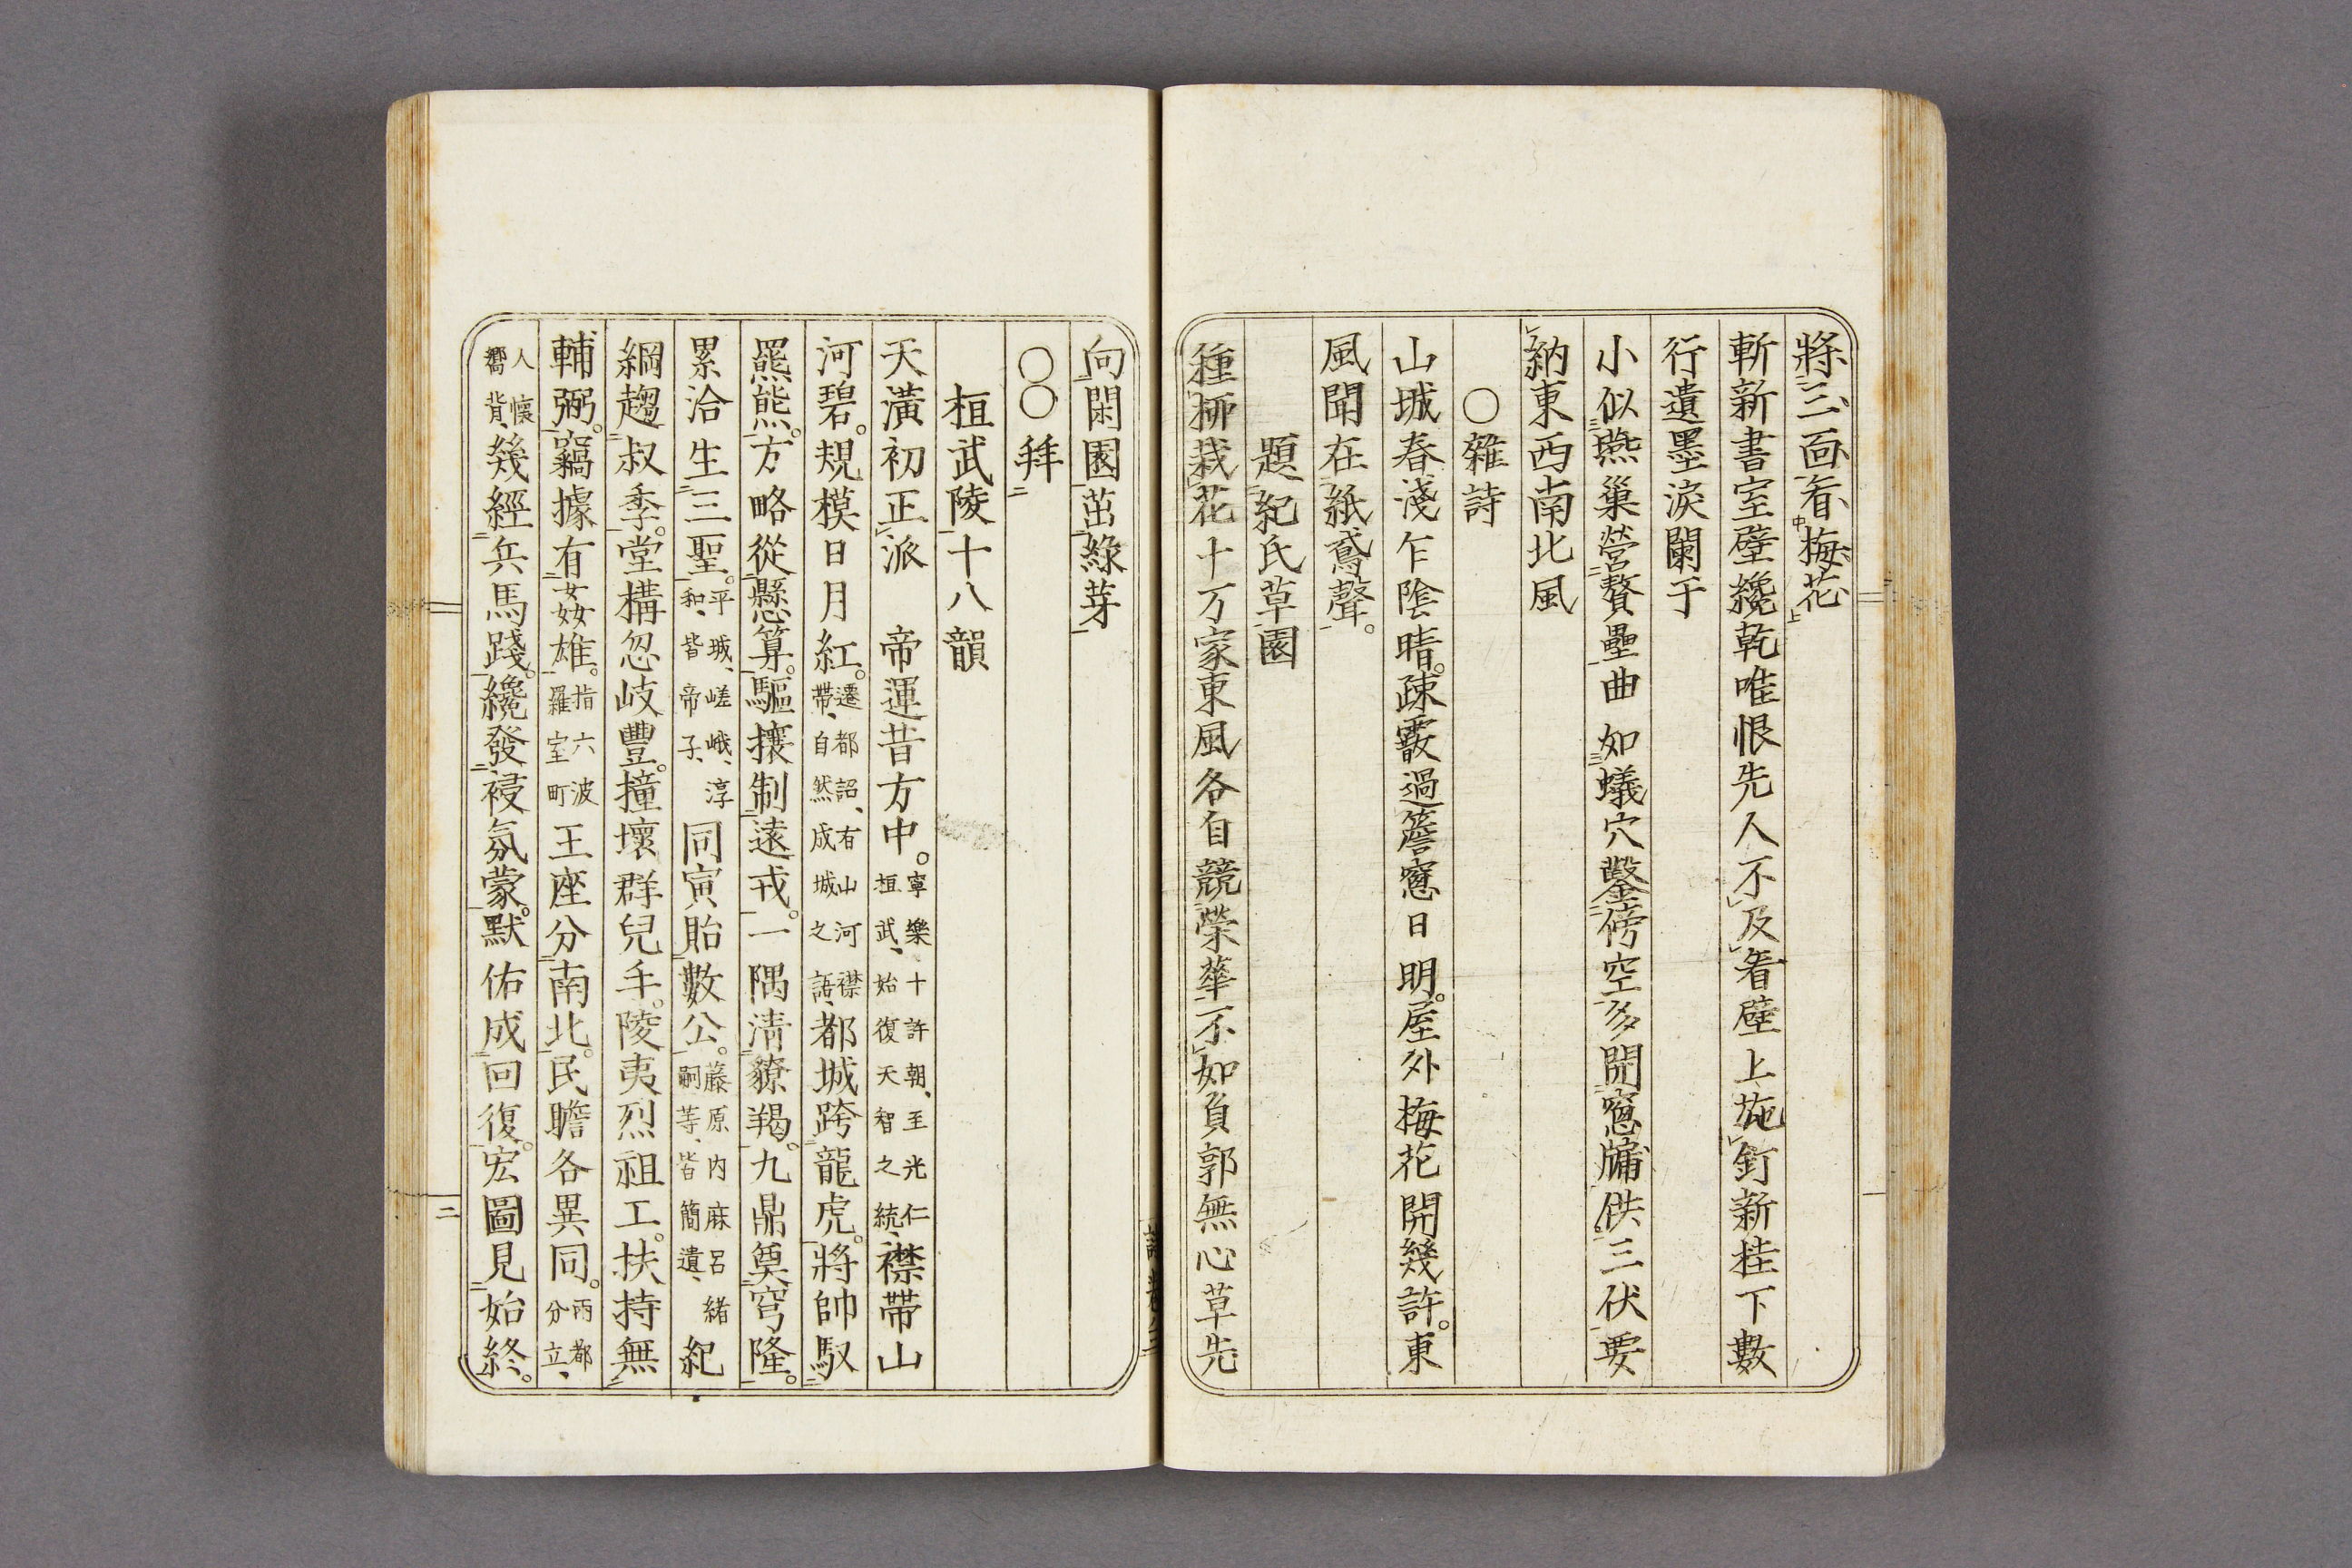 將三面看梅花
斬新書室壁纔乾唯恨先人不及看壁上施釘新挂下數
行遺墨淚闌于
小似燕巢營贅壘曲如蟻穴鑿傍空多開窻牖供三伏要
納東西南北風
〇雜詩
山城春淺乍陰晴。疎霰過簷窻日明。屋外梅花開幾許。東
風聞在紙鳶聲。
題紀氏草園
種柳栽花十万家東風各自競榮華不如負郭無心草先
向閑園茁綠芽
〇〇拜
桓武陵十八韻
天潢初正派　帝運昔方中。寧樂十許朝、至光仁桓武、始復天智之統、襟帶山
河碧。規模日月紅。遷都詔、有山河襟帶、自然成城之語、都城跨龍虎。將帥馭
羆熊。方略從懸算。驅攘制遠戎。一隅淸獠羯。九鼎奠穹隆。
累洽生三聖。平城、嵯峨、淳和、皆帝子、同寅貽數公。藤原内麻呂緒嗣等、皆簡遺、紀
綱趨叔季。堂構忽岐豐。撞壞群兒手。陵夷烈祖工。扶持無
輔弼。竊據有姦雄。指六波羅室町王座分南北。民瞻各異同。兩都分立、
人懷嚮背、幾經兵馬踐。纔發祲氛蒙。默佑成回復。宏圖見始終。
二